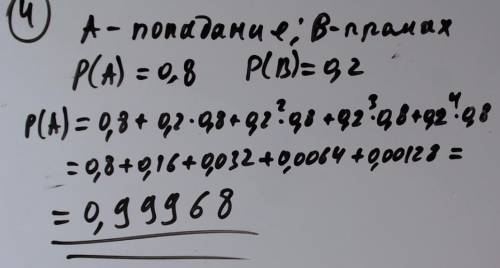 4
А - попадание; В - промах
P(A) = 0,8 P(B) = 0,2
P(A) = 0,8 + 0,2·0,8 + 0,2²·0,8 + 0,2³·0,8 + 0,2⁴·0,8
= 0,8 + 0,16 + 0,032 + 0,0064 + 0,00128 =
= 0,99968